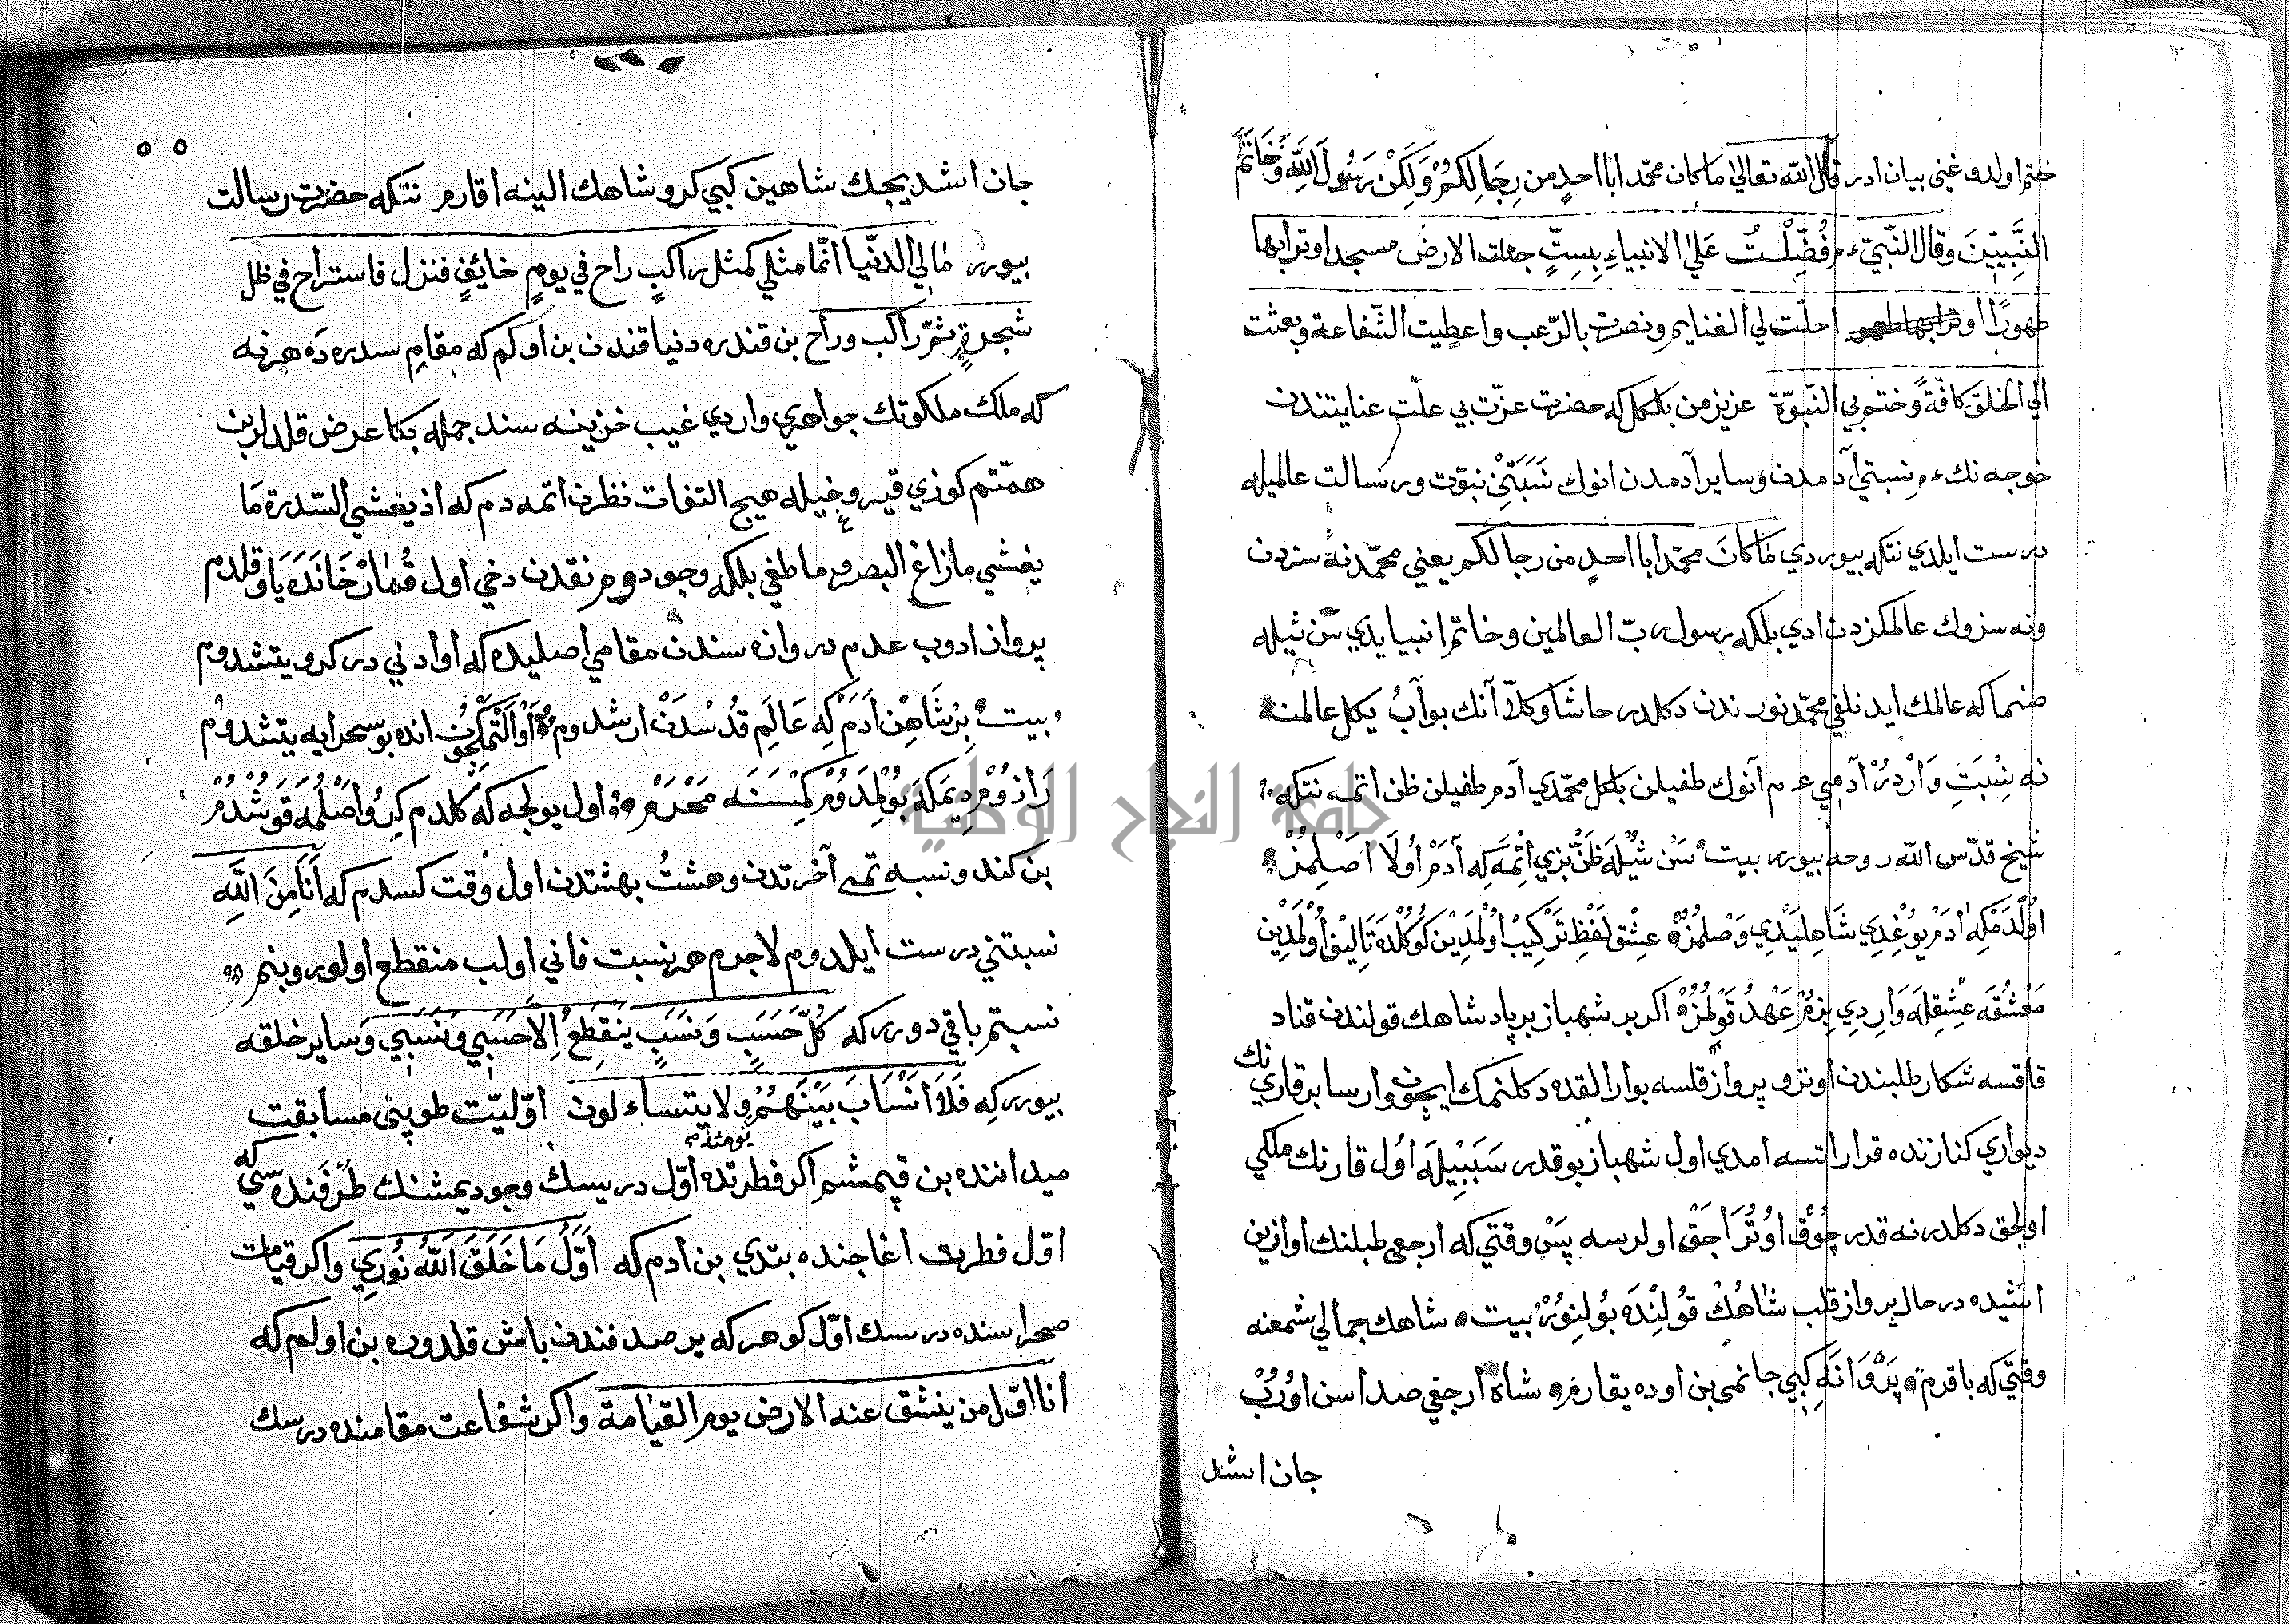 ختم اولدوغنى بيان ادر قال الله تعالى ما كان محمّد ابا احدٍ من رِجَالِكُمْ وَلَكِنْ رَسُولَ اللّهِ وَخَاتَمَ
النَّبِيّينَ وقال النّبيّ ءم فُضِّلْتُ عَلَى الانبياءِ بِسِتٍّ جعلت الارض مسجدا وترابها
طهورًا احلّت لي الغنايم ونصرت بالرّعب واعطيت الشّفاعة وبعثت
الي الخلق كافّةً وختم بي النّبوّة عزيز من بلكل كه حضرت عزّت بي علّت عنايتندن
خوجه نك ءم نسبتي آدمدن وساير آدمدن انوك نَسَبَتِنْ نبوّت ورسالت عالميله
درست ايلدي نتكه بيوردي مَا كَانَ محمّد ابا احدٍ من رجالكم يعني محمّد نه سزدن
ونه سزوك عالمكزدن ادي بلكه رسول ربّ العالمين وخاتم انبيا يدي سن شيله
صنما كه عالمك ايدنلغي محمّد نورندن دكلدر حاشا وكلّا آنك بو آب يكل عالمنه
نه نِسْبَتِ وَارْدُرْ آدمي عم آنوك طفيلن بلكل محمّدي آدم طفيلن ظن اتمه نتكه
شيخ قدّس الله روحه بيورر بيت سَن شيْلَه ظَنّ بزي اتْمَه كِه آدَمْ اُولَا اَصْلِمِزْ
اوُلْدَمْكِه آدَمْ يوُغِدِي شَاهِلَيْدِي وَصْلمُزْ عِشْق لَفْظِ تَرْكِيبْ اوُلْمَدِينْ كوُكُلْدَه تَالِيفْ اوُلْمَدِين
مَعْشُقَه عِشْقِلَه وَارِدِي بِزمْ عَهْدُ قَوْلمُزْ اكر بر شهباز بر پادشاهك قولندن قناد
قاقسه شكار طلبندن اوترو پرواز قلسه بو ارالقده دكلنمك ايچون وارسا بر قاري نك
ديواري كنارنده قرار اتسه امدي اول شهباز بو قدر سَبَبِيْلَه اوُل قارنك ملكي
اولجق دكلدر نه قدر چوُق اوُتُرَاجَقْ اولرسه پَسْ وقتي كه ارجعي طبلنك اوازين
اشيده درحال پرواز قلب شاهُكْ قوُلِنْدَه بُولِنوُرْ بيت شاهك جمالي شمعنه
وقتي كه باقرم پَرْوَانَه كِبِي جانمى بن اوده يقارم شاه ارجعي صداسن اوُرُبْ
جان اشد
جان اشديجك شاهين كبي كرو شاهك الينه اقارم نتكه حضرت رسالت
بيورر مالي الدنّيا انّما مثلي كمثل راكبٍ راح في يومٍ خائفٍ فنزل فاستراح في ظل
شجرةٍ ثمّ راكب وراح بن قنده دنيا قندن بن اوكم كه مقامِ سدره ده هر نه
كه ملك ملكوتك جواهري واردي غيب خزينه سند جمله بكا عرض قلدلر بن
همّتم كوزي قيروغيله هيچ التفات نظرن اتمه دم كه اذ يغشي السّدرة مَا
يغشي ما زاغ البصر وما طغي بلكه وجودوم نقدن دخي اول قُمَارْخَانَدَه ياو قلدم
پرواز ادوب عدم دروازه سندن مقامي اصليده كه او ادني در كرو يتشدوم
بيت بِرْ شَاهِنْ اَدَمْ كِه عَالَمِ قُدُسْدَنْ ارشدوم اَوْ اَلْتَمَكِچُونْ انده بو صحرايه يتشدوُم
رَازوُمْ دِيمَكَه بوُلْمَدوُمْ كِمْسَنَه مَحْرَمْ اول يولجه كه كلدم كِرُو اَصْلُمَه قَوُشْدُمْ
بن كندو نسبه تمى آخرتدن وهشتُ بهشتدن اول وقت كسدم كه اَنَا مِنَ اللّهِ
نسبتني درست ايلدوم لاجرم هر نسبت فاني اولب منقطع اولور وبنم
نسبتم باقي دورر كه كُلُّ حَسَبٍ وَنَسَبٍ يَنْقَطِعُ اِلَّا حَسَبِي وَنَسَبِي وَساير خلقه
بيورر كِه فَلَا اَنْسَابَ بَيْنَهُمْ يومئذٍ ولا يتساءلون اوّليّت طوپنى مسابقت
ميداننده بن قپمشم اكر فطرتده اوّل درسك وجود يمشنك طرفنده سكي كه
اوّل فطرت اغاجنده بتدي بن ادم كه اَوَّلُ مَا خَلَقَ اللّهُ نُورِي واكر قيامت
صحراسنده درسك اوّل كوهر كه ير صدفندن باش قلدوره بن اولم كه
انا اوّل من ينشق عنه الارض يوم القيامة واكر شفاعت مقامنده درسك
جامعة النجاح الوطنية